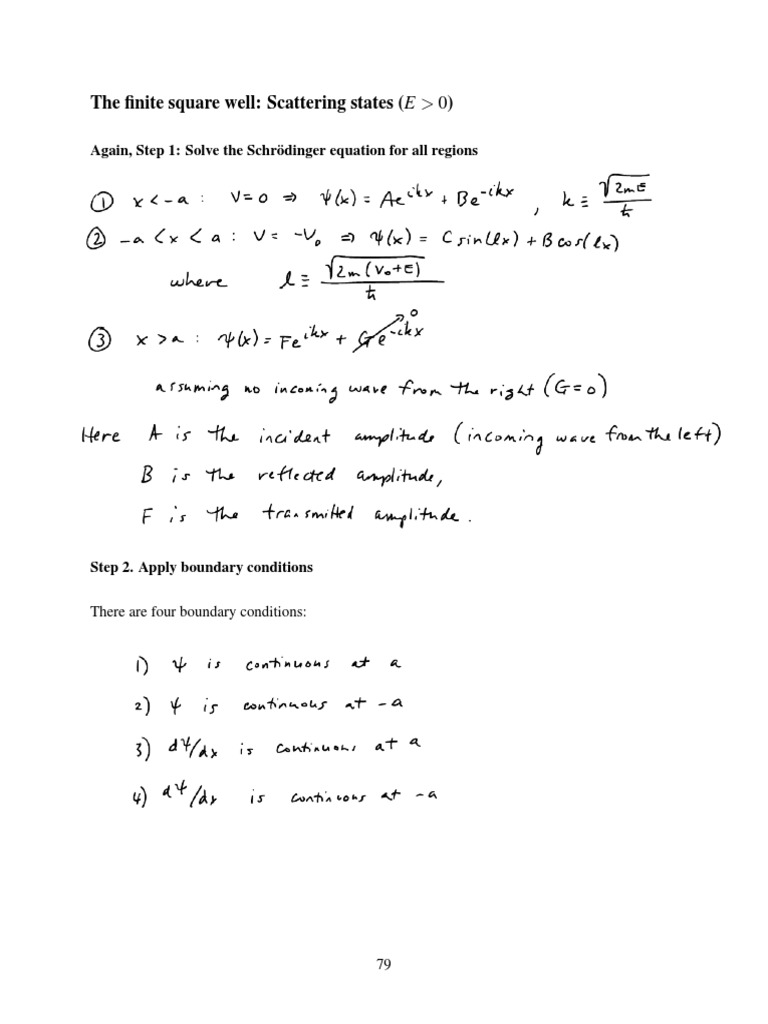 The finite square well: Scattering states (E > 0)
Again, Step 1: Solve the Schrödinger equation for all regions
① x < -a : V = 0 ⇒ ψ(x) = Ae^{ikx} + Be^{-ikx} , k ≡ √(2mE)/ħ
② -a < x < a : V = -V₀ ⇒ ψ(x) = C sin(lx) + B cos(lx)
where l ≡ √(2m(V₀+E))/ħ
③ x > a : ψ(x) = Fe^{ikx} + Ge^{-ikx} ↗ 0
assuming no incoming wave from the right (G=0)
Here A is the incident amplitude (incoming wave from the left)
B is the reflected amplitude,
F is the transmitted amplitude.
Step 2. Apply boundary conditions
There are four boundary conditions:
1) ψ is continuous at a
2) ψ is continuous at -a
3) dψ/dx is continuous at a
4) dψ/dx is continuous at -a
79